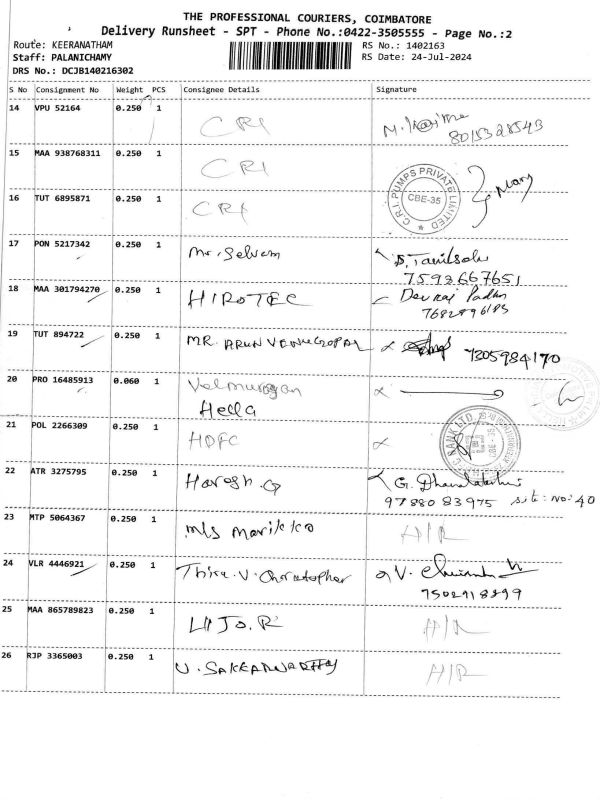 THE PROFESSIONAL COURIERS, COIMBATORE
Delivery Runsheet - SPT - Phone No.:0422-3505555 - Page No.:2
Route: KEERANATHAM
RS No.: 1402163
Staff: PALANICHAMY
RS Date: 24-Jul-2024
DRS No.: DCJB140216302
S No Consignment No Weight PCS Consignee Details Signature
14 VPU 52164 0.250 1 CRI
8015328543
15 MAA 938768311 0.250 1 CRI
C.R.I. PUMPS PRIVATE LIMITED
CBE-35
Mary
16 TUT 6895871 0.250 1 CRI
17 PON 5217342 0.250 1 Mr. Selvam
7593667651
18 MAA 301794270 0.250 1 HIROTEC
Devraj
19 TUT 894722 0.250 1 MR. ARUN VENUGOPAL 7305984170
20 PRO 16485913 0.060 1 Velmurugan
Hella
21 POL 2266309 0.250 1 HDFC
22 ATR 3275795 0.250 1 Haresh. G G. Dhanalakshmi
9788083975 site: no: 40
23 MTP 5064367 0.250 1 M/s Marikko
24 VLR 4446921 0.250 1 Thiru. V. V.
7502918899
25 MAA 865789823 0.250 1
26 RJP 3365003 0.250 1 V. SAKKARWARTHY